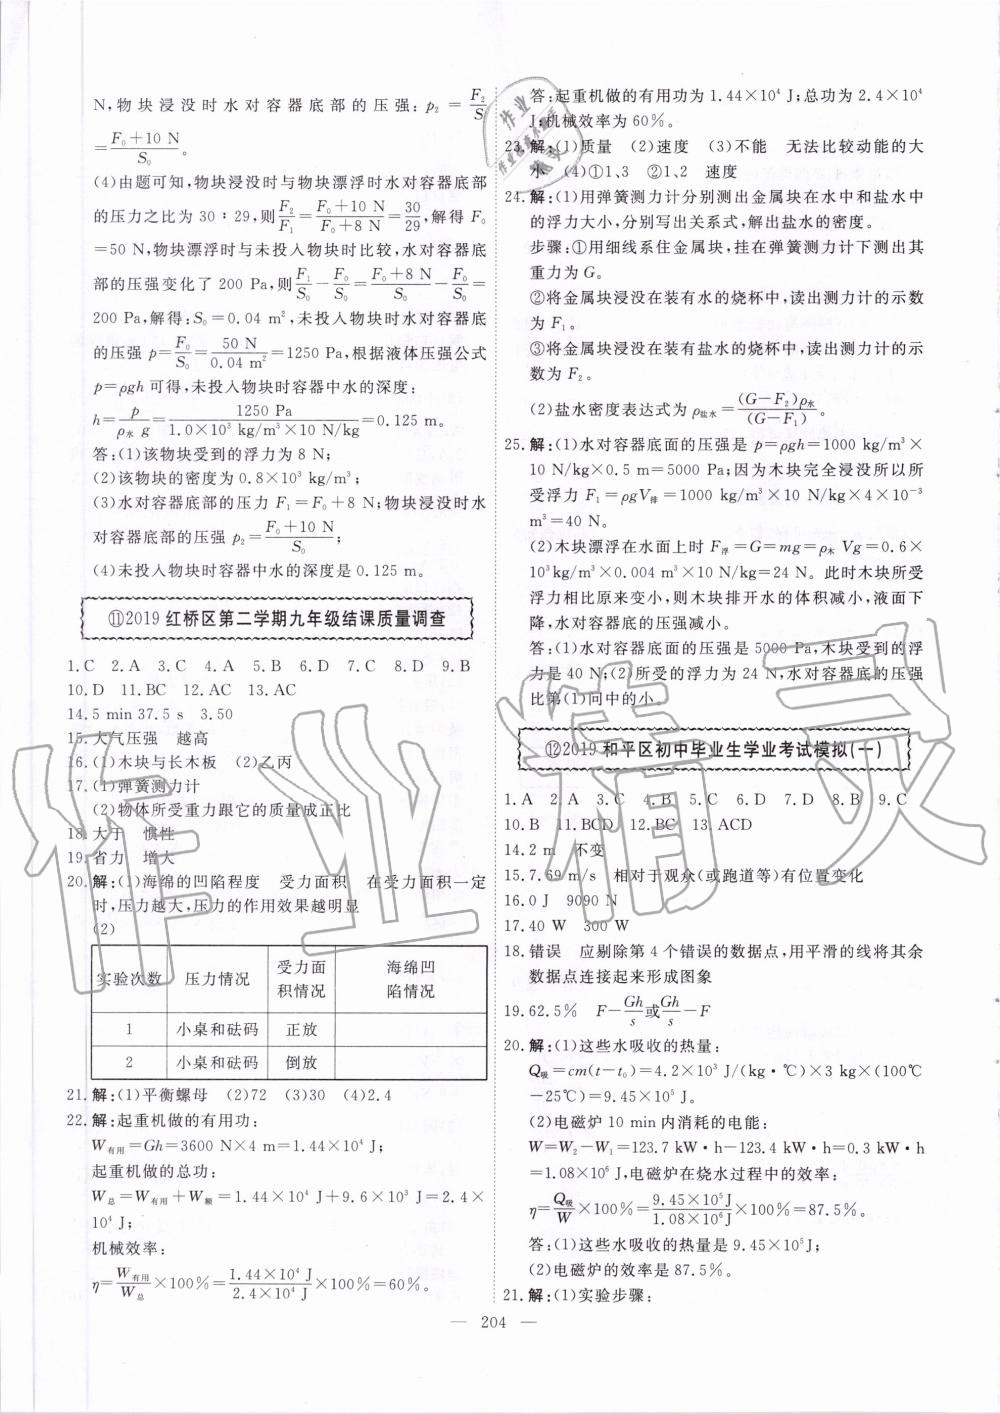 N,物块浸没时水对容器底部的压强:p₂=F₂/S
=(F₀+10 N)/S₀。
(4)由题可知,物块浸没时与物块漂浮时水对容器底部
的压力之比为30∶29,则F₂/F₁=(F₀+10 N)/(F₀+8 N)=30/29,解得F₀
=50 N,物块漂浮时与未投入物块时比较,水对容器底
部的压强变化了200 Pa,则F₁/S₀-F₀/S₀=(F₀+8 N)/S₀-F₀/S₀=
200 Pa,解得:S₀=0.04 m²,未投入物块时水对容器底
的压强p=F₀/S₀=50 N/0.04 m²=1250 Pa,根据液体压强公式
p=ρgh可得,未投入物块时容器中水的深度:
h=p/(ρ水 g)=1250 Pa/(1.0×10³ kg/m³×10 N/kg)=0.125 m。
答:(1)该物块受到的浮力为8 N;
(2)该物块的密度为0.8×10³ kg/m³;
(3)水对容器底部的压力F₁=F₀+8 N;物块浸没时水
对容器底部的压强p₂=(F₀+10 N)/S₀;
(4)未投入物块时容器中水的深度是0.125 m。
⑪2019 红桥区第二学期九年级结课质量调查
1.C 2.A 3.C 4.A 5.B 6.D 7.C 8.D 9.B
10.D 11.BC 12.AC 13.AC
14.5 min 37.5 s 3.50
15.大气压强 越高
16.(1)木块与长木板 (2)乙丙
17.(1)弹簧测力计
(2)物体所受重力跟它的质量成正比
18.大于 惯性
19.省力 增大
20.解:(1)海绵的凹陷程度 受力面积 在受力面积一定
时,压力越大,压力的作用效果越明显
(2)
实验次数 压力情况 受力面积情况 海绵凹陷情况
1 小桌和砝码 正放
2 小桌和砝码 倒放
21.解:(1)平衡螺母 (2)72 (3)30 (4)2.4
22.解:起重机做的有用功:
W有用=Gh=3600 N×4 m=1.44×10⁴ J;
起重机做的总功:
W总=W有用+W额=1.44×10⁴ J+9.6×10³ J=2.4×
10⁴ J;
机械效率:
η=W有用/W总×100%=1.44×10⁴ J/2.4×10⁴ J×100%=60%。
答:起重机做的有用功为1.44×10⁴ J;总功为2.4×10⁴
J;机械效率为60%。
23.解:(1)质量 (2)速度 (3)不能 无法比较动能的大
小 (4)①1,3 ②1,2 速度
24.解:(1)用弹簧测力计分别测出金属块在水中和盐水中
的浮力大小,分别写出关系式,解出盐水的密度。
步骤:①用细线系住金属块,挂在弹簧测力计下测出其
重力为G。
②将金属块浸没在装有水的烧杯中,读出测力计的示数
为F₁。
③将金属块浸没在装有盐水的烧杯中,读出测力计的示
数为F₂。
(2)盐水密度表达式为ρ盐水=(G-F₂)ρ水/(G-F₁)。
25.解:(1)水对容器底面的压强是p=ρgh=1000 kg/m³×
10 N/kg×0.5 m=5000 Pa;因为木块完全浸没所以所
受浮力F₁=ρgV排=1000 kg/m³×10 N/kg×4×10⁻³
m³=40 N。
(2)木块漂浮在水面上时F浮=G=mg=ρ木 Vg=0.6×
10³kg/m³×0.004 m³×10 N/kg=24 N。此时木块所受
浮力相比原来变小,则木块排开水的体积减小,液面下
降,水对容器底的压强减小。
答:(1)水对容器底面的压强是5000 Pa,木块受到的浮
力是40 N;(2)所受的浮力为24 N,水对容器底的压强
比第(1)问中的小。
⑫2019 和平区初中毕业生学业考试模拟(一)
1.A 2.A 3.C 4.B 5.C 6.D 7.D 8.B 9.C
10.B 11.BCD 12.BC 13.ACD
14.2 m 不变
15.7.69 m/s 相对于观众(或跑道等)有位置变化
16.0 J 9090 N
17.40 W 300 W
18.错误 应剔除第4个错误的数据点,用平滑的线将其余
数据点连接起来形成图象
19.62.5% F-Gh/s或Gh/s-F
20.解:(1)这些水吸收的热量:
Q吸=cm(t-t₀)=4.2×10³ J/(kg·℃)×3 kg×(100℃
-25℃)=9.45×10⁵ J;
(2)电磁炉10 min内消耗的电能:
W=W₂-W₁=123.7 kW·h-123.4 kW·h=0.3 kW·h
=1.08×10⁶ J,电磁炉在烧水过程中的效率:
η=Q吸/W×100%=9.45×10⁵J/1.08×10⁶J×100%=87.5%。
答:(1)这些水吸收的热量是9.45×10⁵J;
(2)电磁炉的效率是87.5%。
21.解:(1)实验步骤:
— 204 —
作业精灵